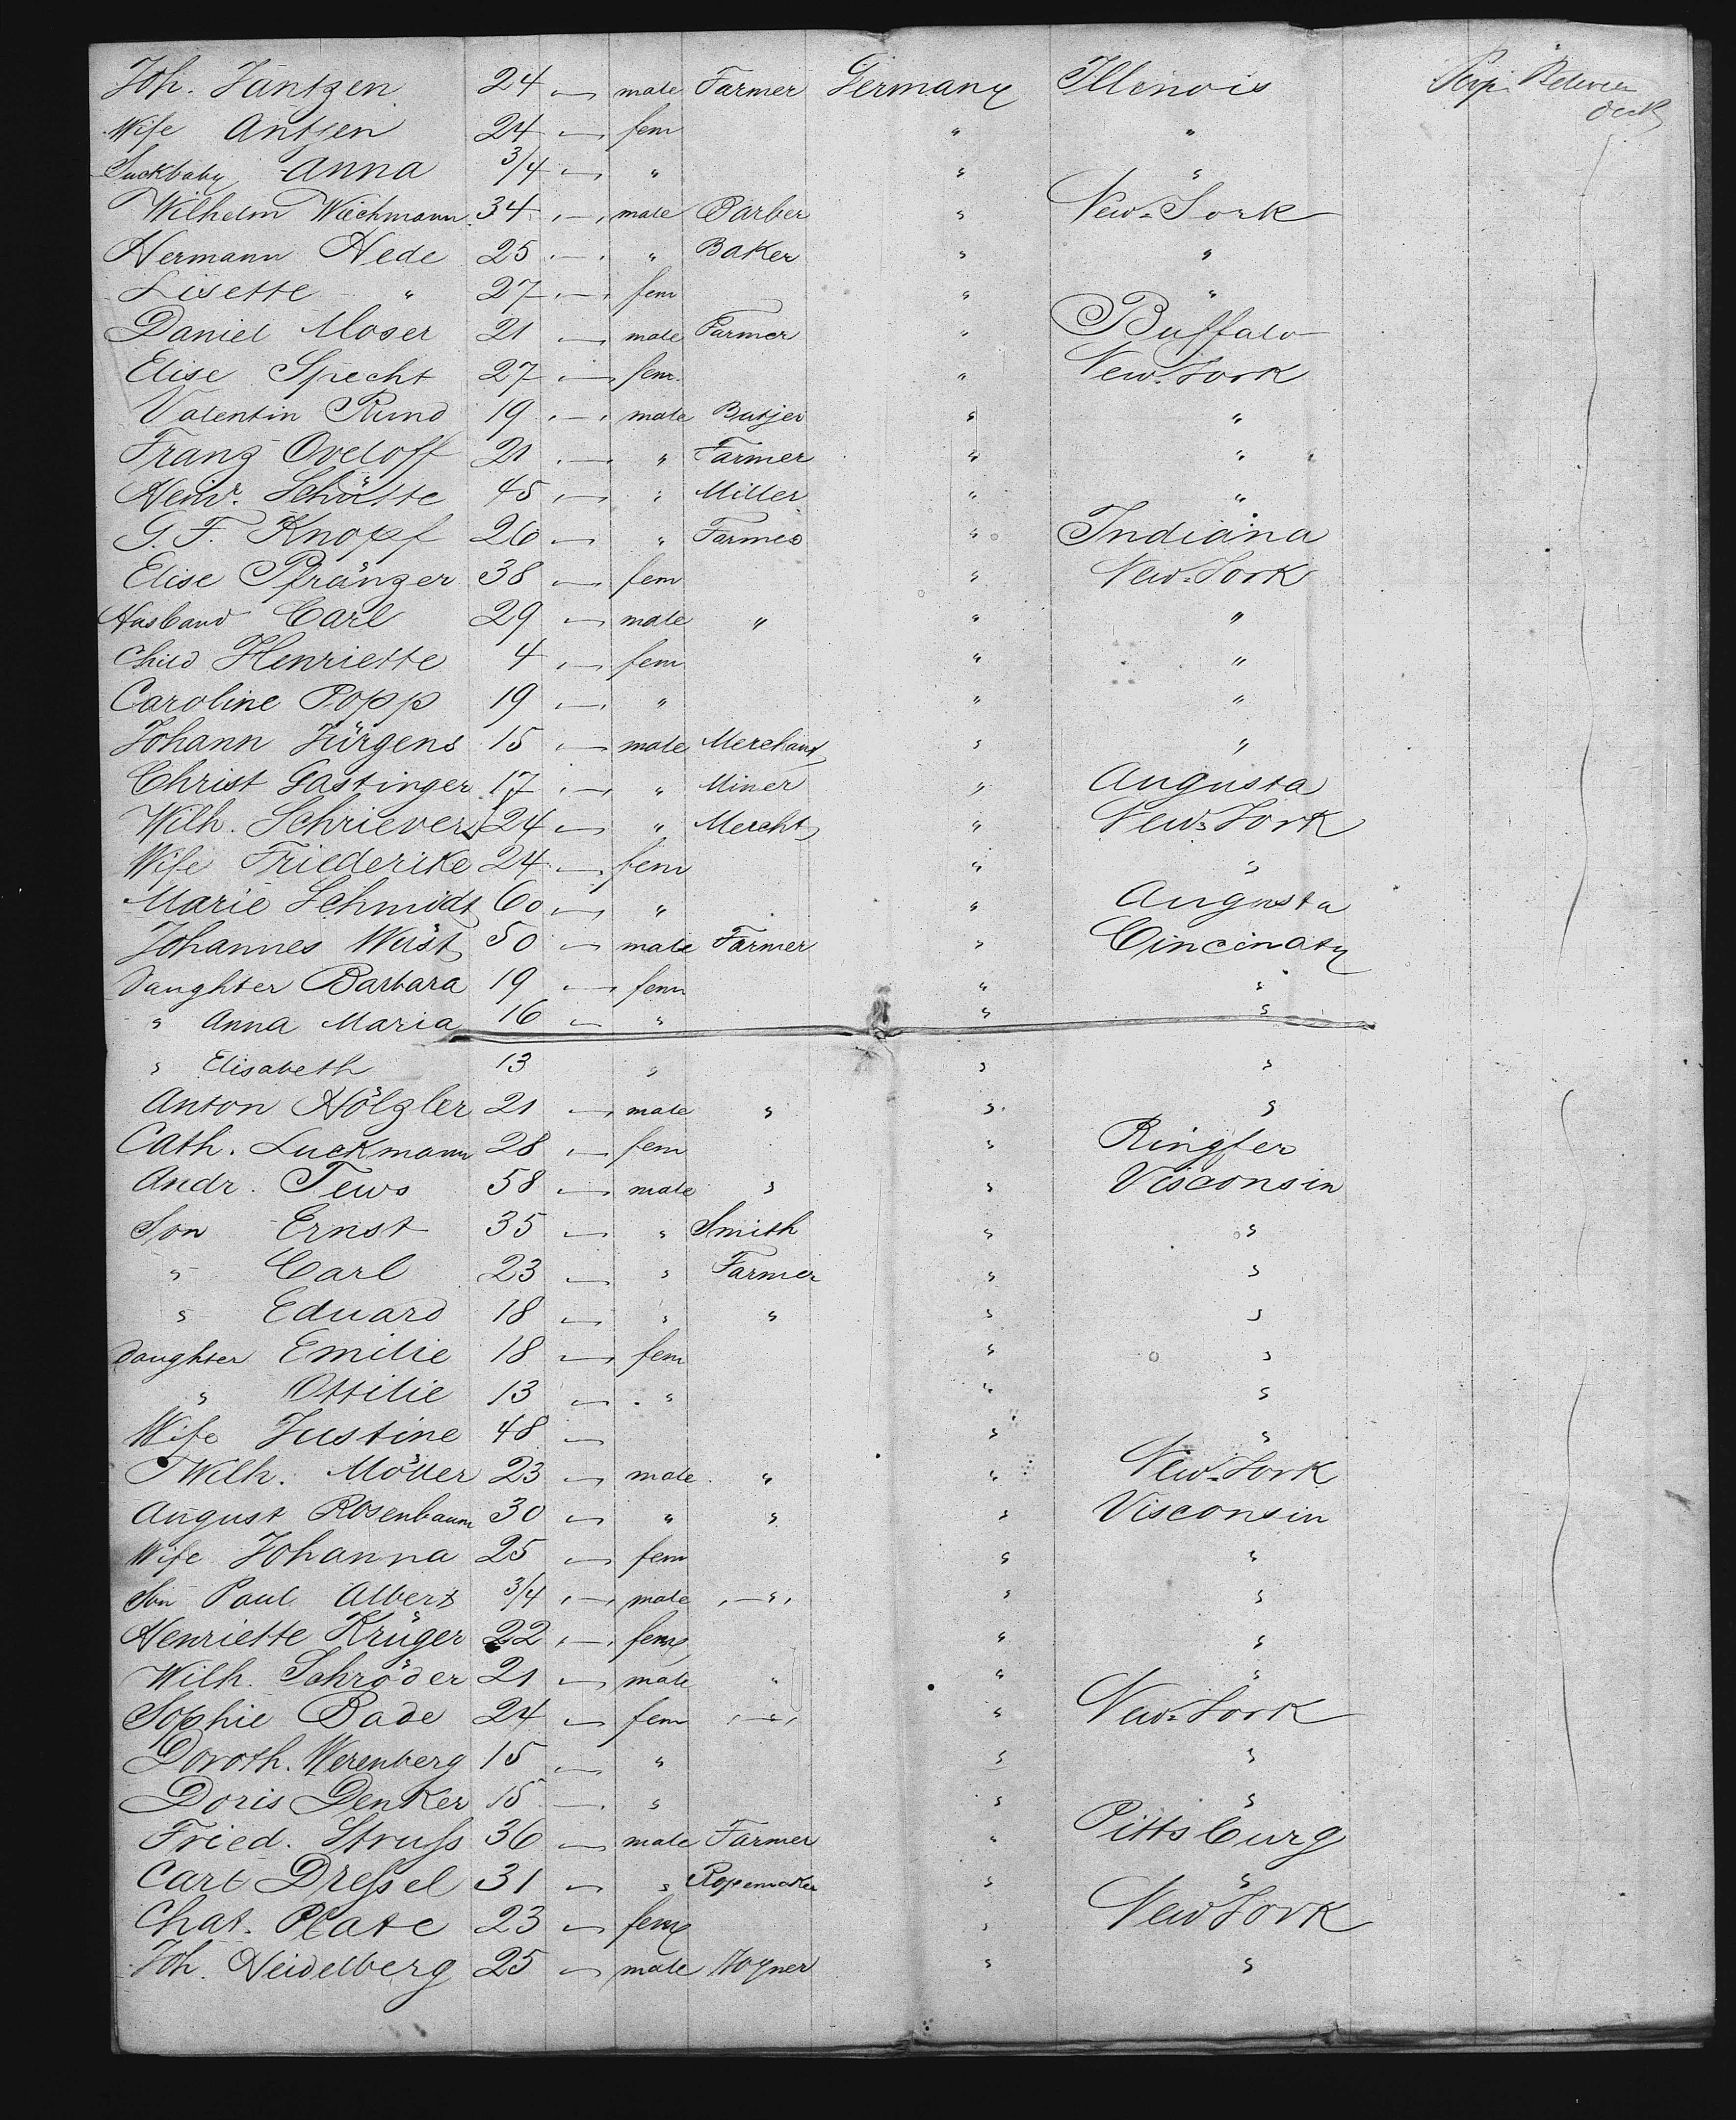 Joh. Jantzen 24 — male Farmer Germany Illinois Betwen
deck
Wife Antjen 24 — fem " "
Suckbaby Anna 3/4 — " " "
Wilhelm Wiechmann 34 — male Barber " New-York
Hermann Hede 25 — " Baker " "
Lisette " 27 — fem " "
Daniel Moser 21 — male Farmer " Buffalo
Elise Specht 27 — fem. " New-York
Valentin Rund 19 — male Butjer " "
Franz Oveloff 21 — " Farmer " "
Heinr. Schütte 45 — " Miller " "
G. F. Knopf 26 — " Farmer " Indiana
Elise Pfränger 38 — fem " New-York
Husband Carl 29 — male " " "
Child Henriette 4 — fem " "
Caroline Popp 19 — " " "
Johann Jürgens 15 — male Merchant " "
Christ Gastinger 17 — " Miner " Augusta
Wilh. Schriever 24 — " Mercht " New-York
Wife Friederike 24 — fem " "
Marie Schmidt 60 — " " Augusta
Johannes Wüst 50 — male Farmer " Cincinaty
Daughter Barbara 19 — fem " "
" Anna Maria 16 — " " "
" Elisabeth 13 " " "
Anton Hölzler 21 — male " " "
Cath. Luckmann 28 — fem " Ringfer
Andr. Tews 58 — male " " Visconsin
Son Ernst 35 — " Smith " "
" Carl 23 — " Farmer " "
" Eduard 18 — " " " "
Daughter Emilie 18 — fem " "
" Ottilie 13 — " " "
Wife Justine 48 — " "
Wilh. Möller 23 — male " " New-York
August Rosenbaum 30 — " " " Visconsin
Wife Johanna 25 — fem " "
Son Paul Albert 3/4 — male — " — " "
Henriette Krüger 22 — fem " "
Wilh. Schröder 21 — male " " "
Sophie Bade 24 — fem — " — " New-York
Doroth. Werenberg 15 — " " "
Doris Denker 15 — " " "
Fried. Struss 36 — male Farmer " Pittsburg
Carl Dressel 31 — " Ropemaker " "
Chat. Plate 23 — fem " New York
Joh. Heidelberg 25 — male " "